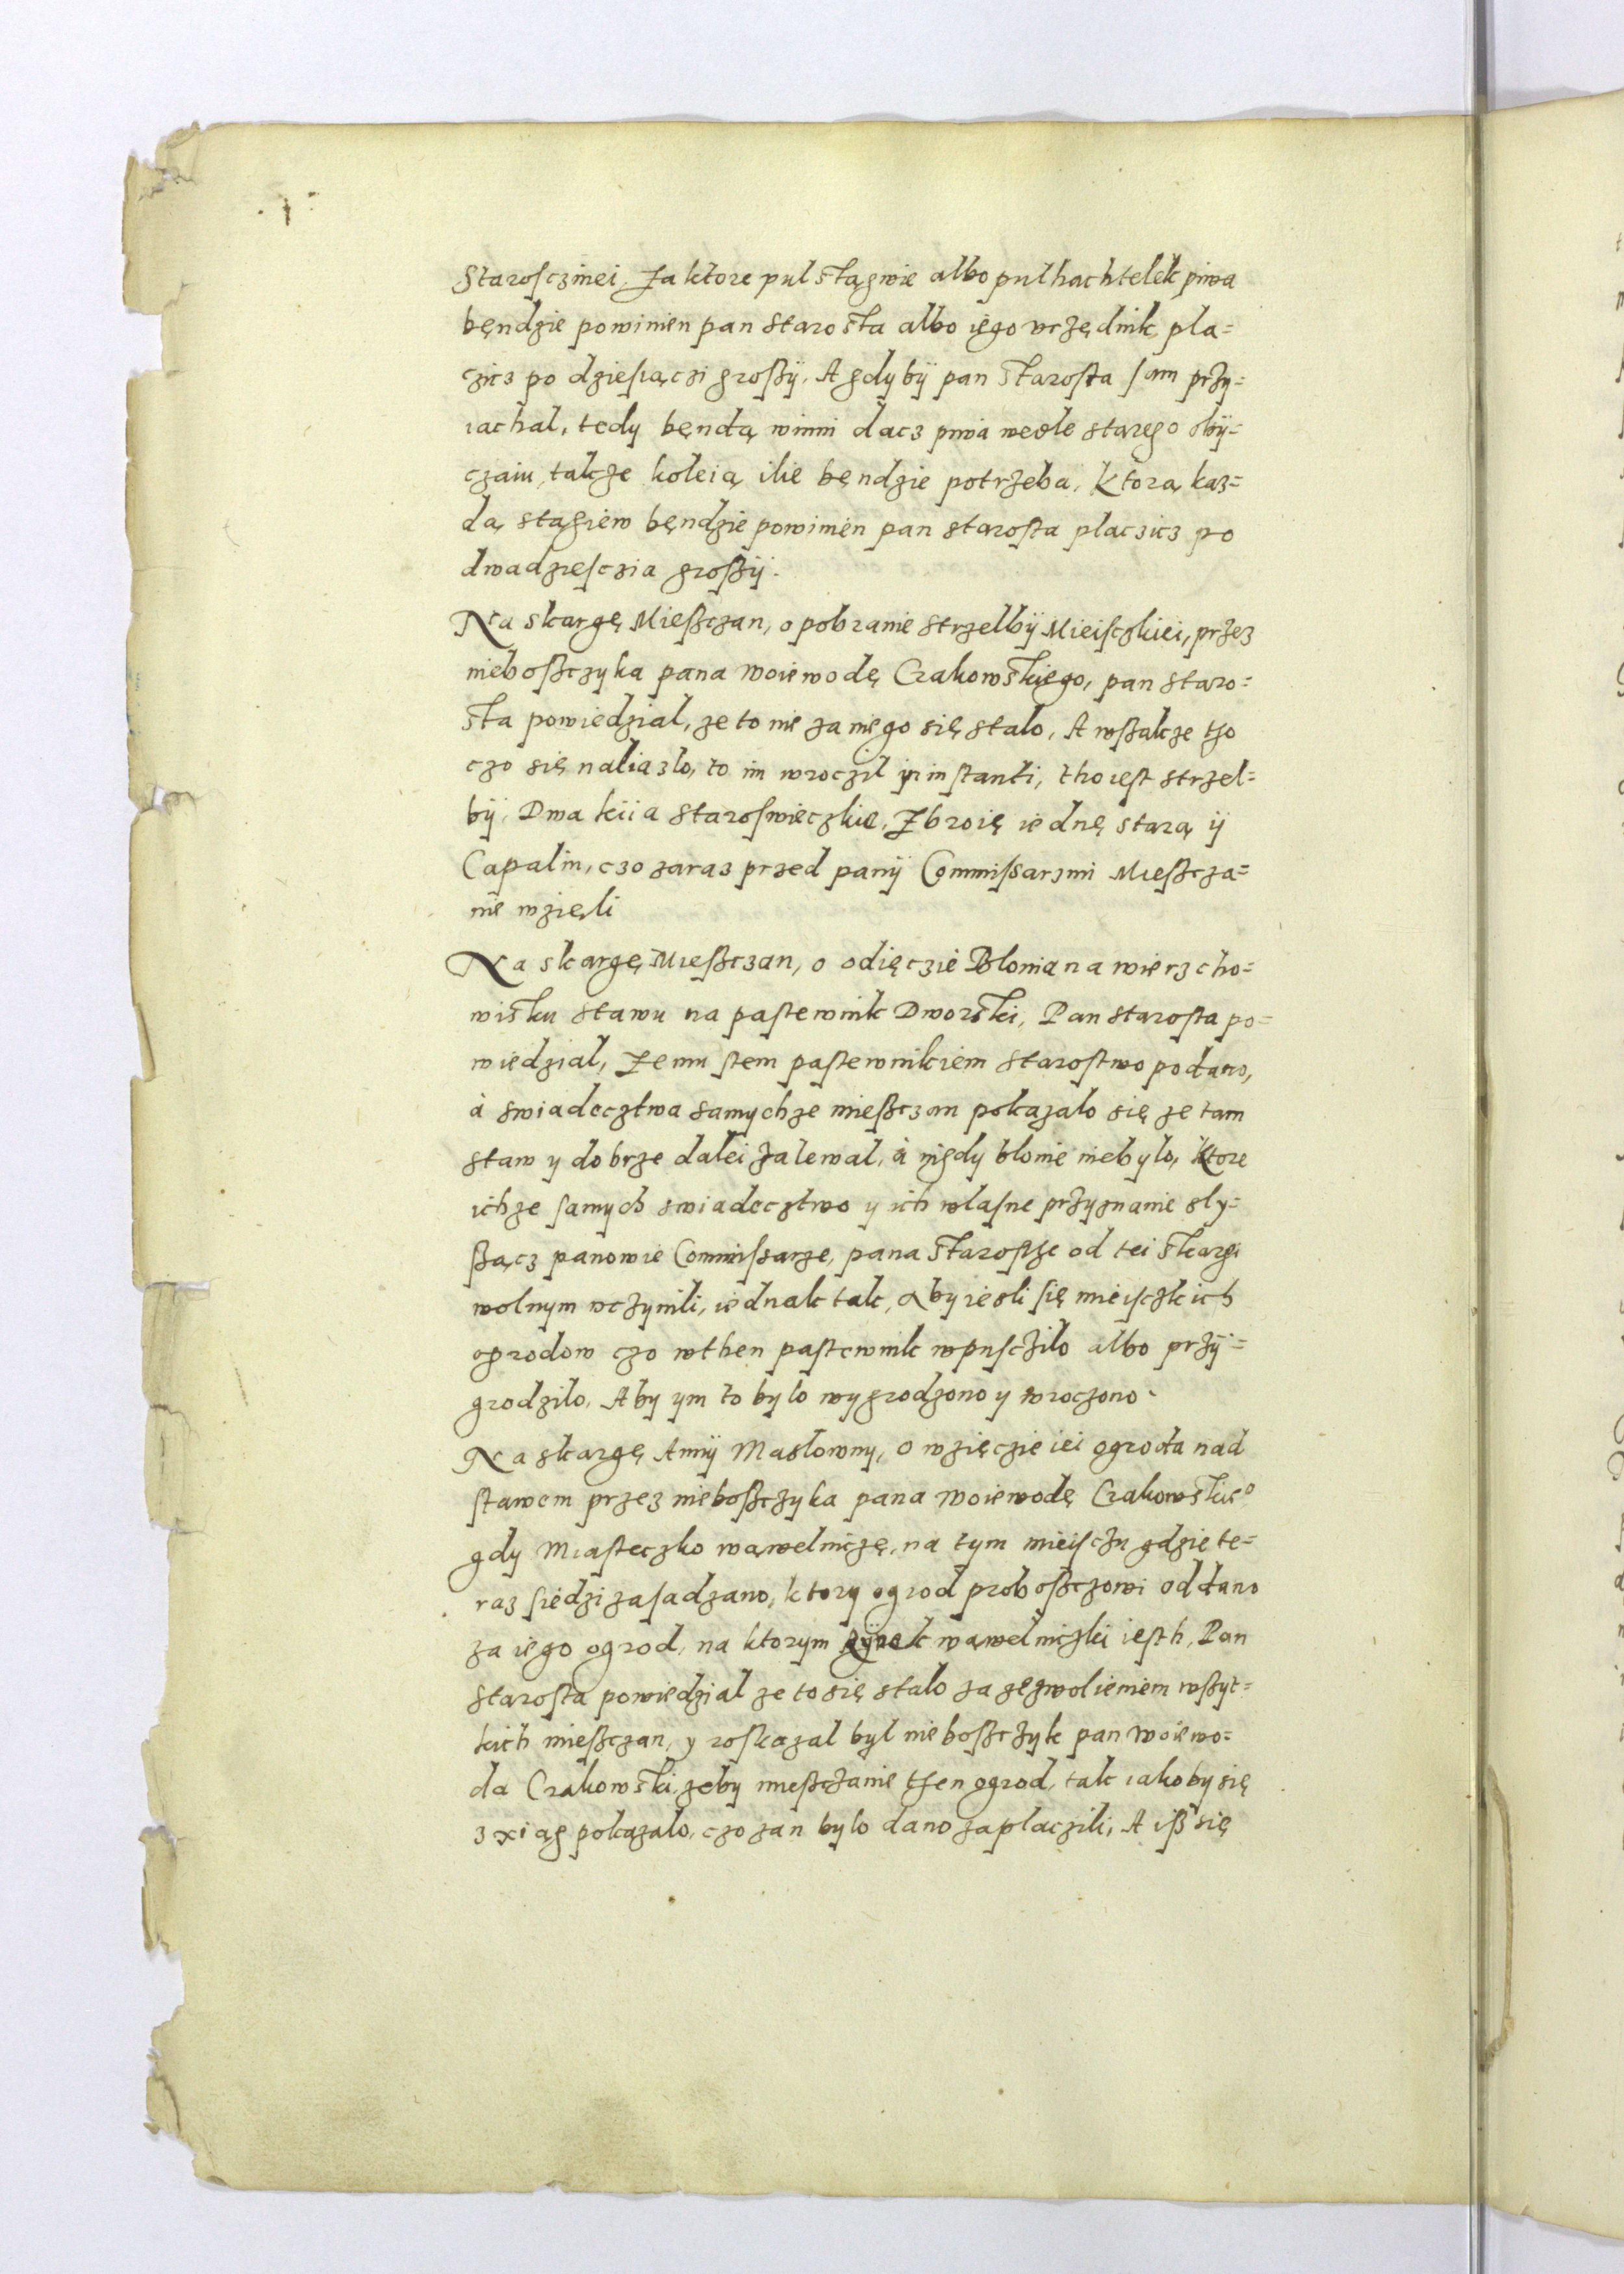 Starosczinei, Za ktore pul stągwie albo pulhachtelek piwa
bęndzie powinien pan Starosta albo iego vrzędnik pla=
czicz po dziesiączi groszÿ. A gdybÿ pan starosta sam przy=
iachal, tedy bęndą winni dacz piwa wedle starego obÿ=
czaiu, takze koleią ilie bęndzie potrzeba, Ktorą kaz=
dą stągiew bęndzie powinien pan starosta placzicz po
dwadziesczia groszÿ.
Na skargę Mieszczan, o pobranie strzelbÿ Mieisczkiei, przez
nieboszczyka pana Woiewodę Crakowskiego, pan staro=
sta powiedzial, ze to nie za niego się stalo, A wszakze tho
czo się naliazlo, to im wroczil in instanti, tho iest strzel=
bÿ. Dwa kiia staroswieczkie, Zbroię iednę starą ÿ
Capalin, czo zaraz przed panÿ Commissarzmi Mieszcza=
nie wzięli
Na skargę Mieszczan, o odięczie Blonia na wierzcho=
wisku stawu na pastewnik Dworski, Pan starosta po=
wiedzial, Ze mu stem pastewnikiem starostwo podano,
à swiadecztwa samychze mieszczan pokazalo się ze tam
staw y dobrze dalei zalewal, à nigdy blonie niebylo, Ktore
ichze samych swiadecztwo y ich wlasne przyznanie sly=
szącz panowie Commissarze, pana starostze od tei skargi
wolnym vczynili, iednak tak, Aby iesli się mieisczkich
ogrodow czo wthen pastewnik wpusczilo albo przÿ=
grodzilo, Aby ym to bylo wygrodzono y wroczono.
Na skargę Annÿ Maslowny, o wzięczie iei ogroda nad
stawem przez nieboszczyka pana Woiewodę Crakowskie°
gdy Miasteczko wąwelniczę, na tym mieisczu gdzie te=
raz siedzi zasadzano, ktory ogrod proboszczowi oddano
za iego ogrod, na ktorym rÿnek wąwelniczki iesth, Pan
starosta powiedzial ze to się stalo za zezwolieniem wszyt=
kich mieszczan, y roskazal byl nieboszczyk pan Woiewo=
da Crakowski, zeby mieszczanie then ogrod, tak iakoby się
z xiąg pokazalo, czo zan bylo dano zaplaczili, A isz się